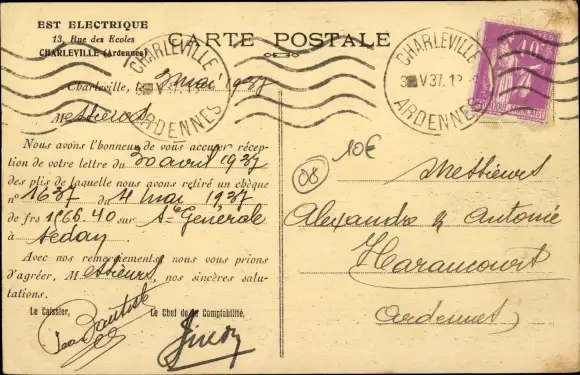 EST ELECTRIQUE
13, Rue des Ecoles
CHARLEVILLE (Ardennes)
CARTE POSTALE
CHARLEVILLE
ARDENNES
CHARLEVILLE
3 V 37
ARDENNES
40c
Charleville, le 3 mai 1937
Messieurs
Nous avons l'honneur de vous accuser récep-
tion de votre lettre du 30 avril 1937
des plis de laquelle nous avons retiré un chèque
n° 1637 du 4 mai 1937
de frs 1666.40 sur Sté Générale
à Sedan
Avec nos remerciements nous vous prions
d'agréer, Messieurs, nos sincères salu-
tations.
Le Caissier, Le Chef de la Comptabilité,
Jean Bautiste
08
10€
Messieurs
Alexandre & Antoine
Haraucourt
Ardennes